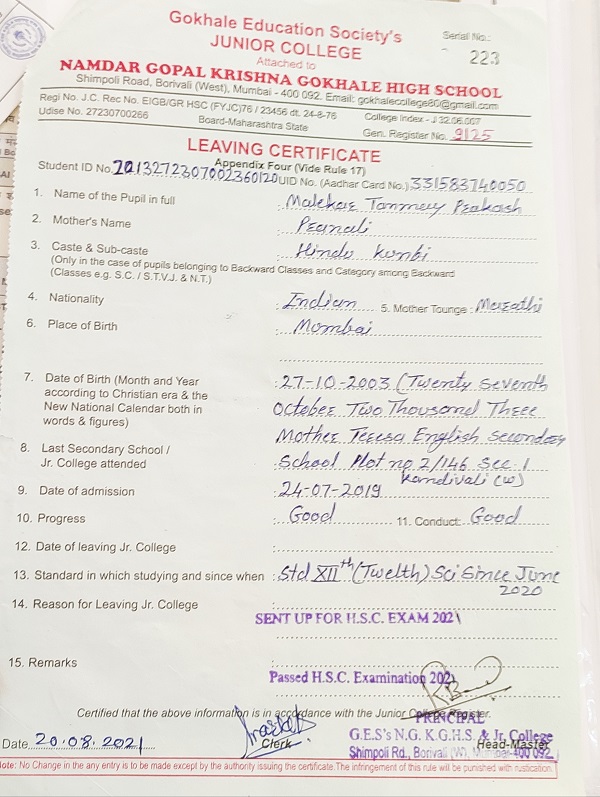 Gokhale Education Society's
Serial No.:
JUNIOR COLLEGE
223
Attached to
NAMDAR GOPAL KRISHNA GOKHALE HIGH SCHOOL
Shimpoli Road, Borivali (West), Mumbai - 400 092. Email: gokhalecollege80@gmail.com
Regi No. J.C. Rec No. EIGB/GR HSC (FYJC)76 / 23456 dt. 24-8-76 College Index - J 32.06.007
Udise No. 27230700266 Board-Maharashtra State Gen. Register No. 9125
LEAVING CERTIFICATE
Appendix Four (Vide Rule 17)
Student ID No. 2013272307002360120 UID No. (Aadhar Card No.) 331583740050
1. Name of the Pupil in full : Malekar Tanmay Prakash
2. Mother's Name : Pranali
3. Caste & Sub-caste : Hindu Kunbi
(Only in the case of pupils belonging to Backward Classes and Category among Backward
(Classes e.g. S.C. / S.T.V.J. & N.T.)
4. Nationality : Indian 5. Mother Tounge : Marathi
6. Place of Birth : Mumbai
7. Date of Birth (Month and Year : 27-10-2003 (Twenty Seventh
according to Christian era & the
New National Calendar both in October Two Thousand Three
words & figures)
Mother Teresa English Secondary
8. Last Secondary School / 
Jr. College attended : School Plot no 2/146 Sec. 1
Kandivali (W)
9. Date of admission : 24-07-2019
10. Progress : Good 11. Conduct: Good
12. Date of leaving Jr. College :
13. Standard in which studying and since when : Std XIIth (Twelth) Sci Since June
2020
14. Reason for Leaving Jr. College :
SENT UP FOR H.S.C. EXAM 2021
15. Remarks
Passed H.S.C. Examination 202
Certified that the above information is in accordance with the Junior College Register.
PRINCIPAL
Date 20.08.2021 Clerk G.E.S's N.G. K.G.H.S. & Jr. College
Head-Master
Shimpoli Rd., Borivali (W), Mumbai-400 092.
Note: No Change in the any entry is to be made except by the authority issuing the certificate.The infringement of this rule will be punished with rustication